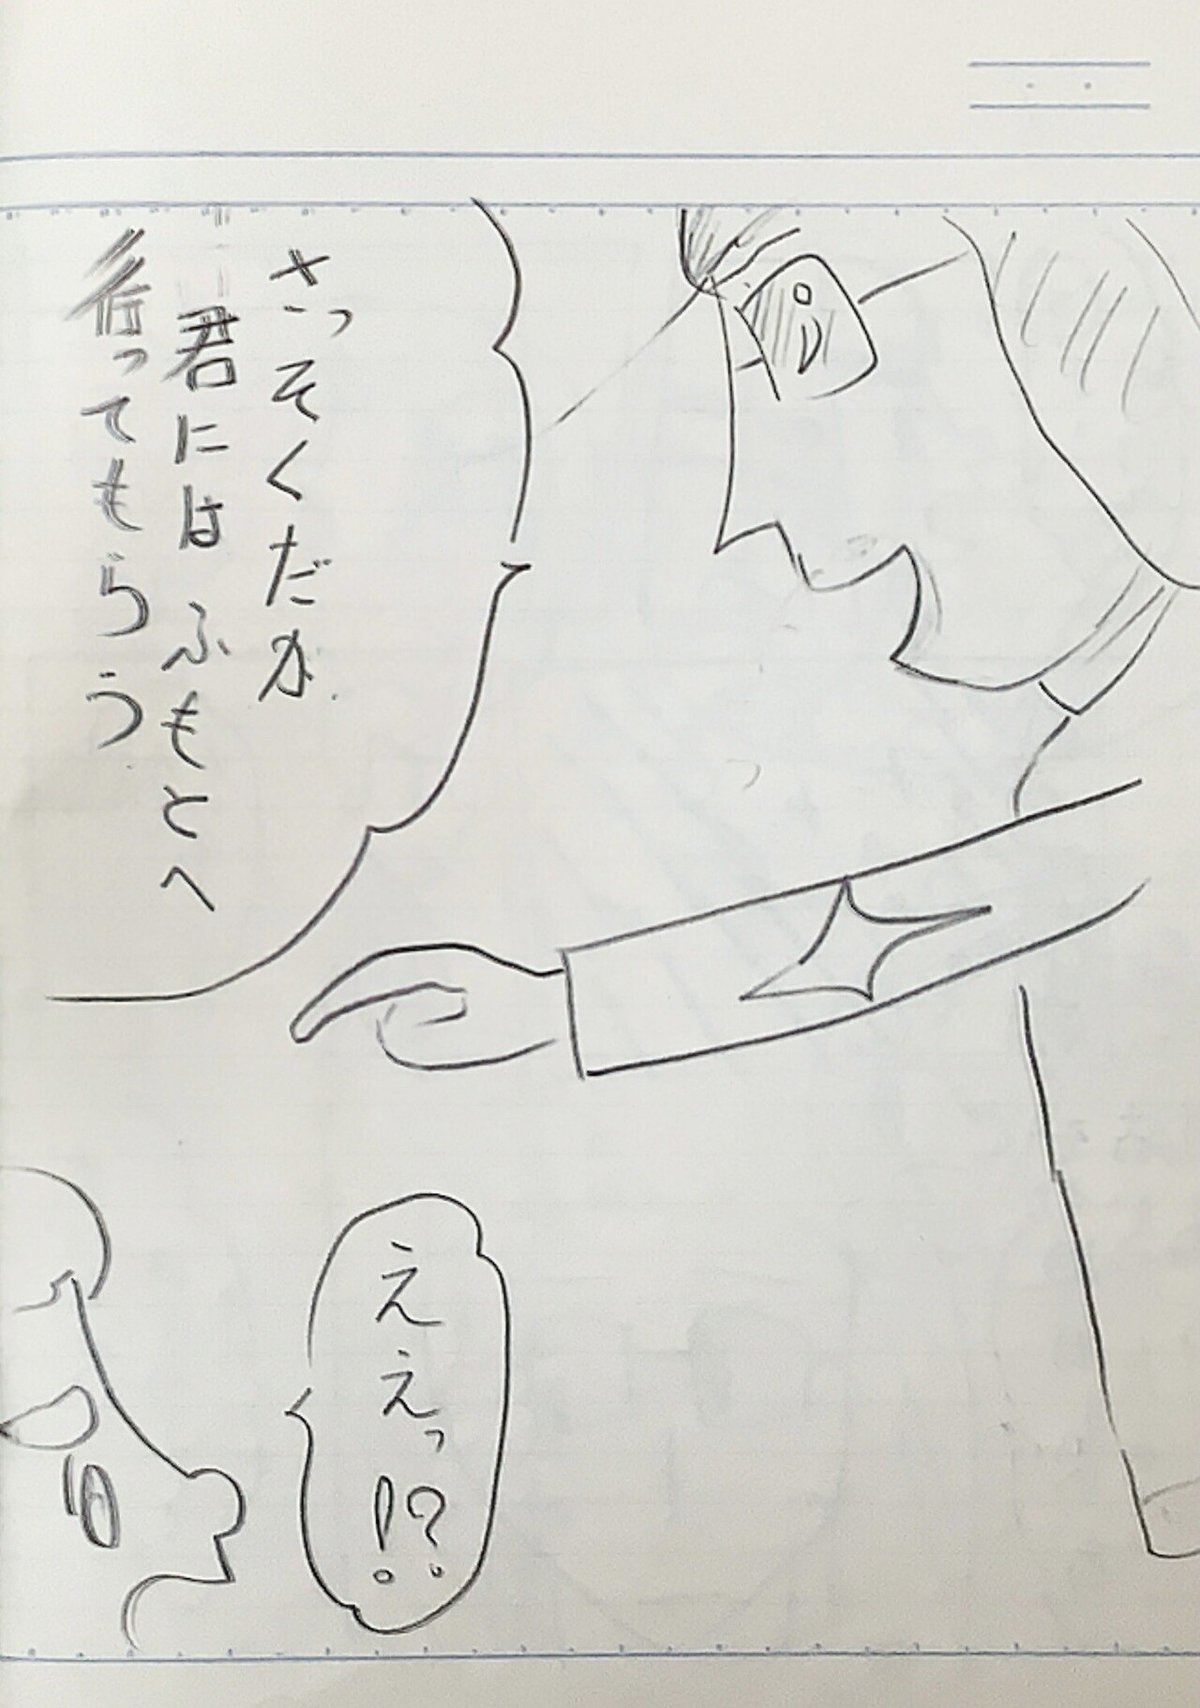 さっそくだが
君にはふもとへ
行ってもらう
ええっ!?